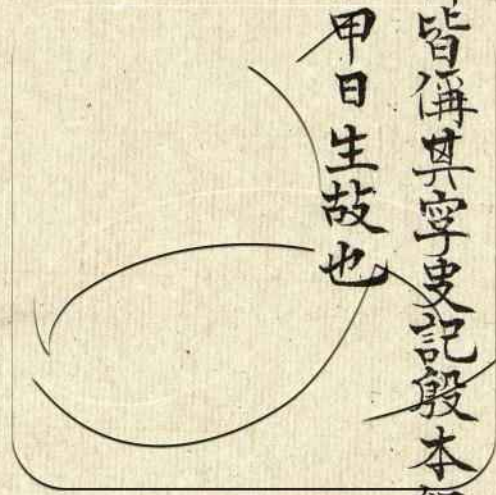 皆偁其字史記殷本
甲日生故也